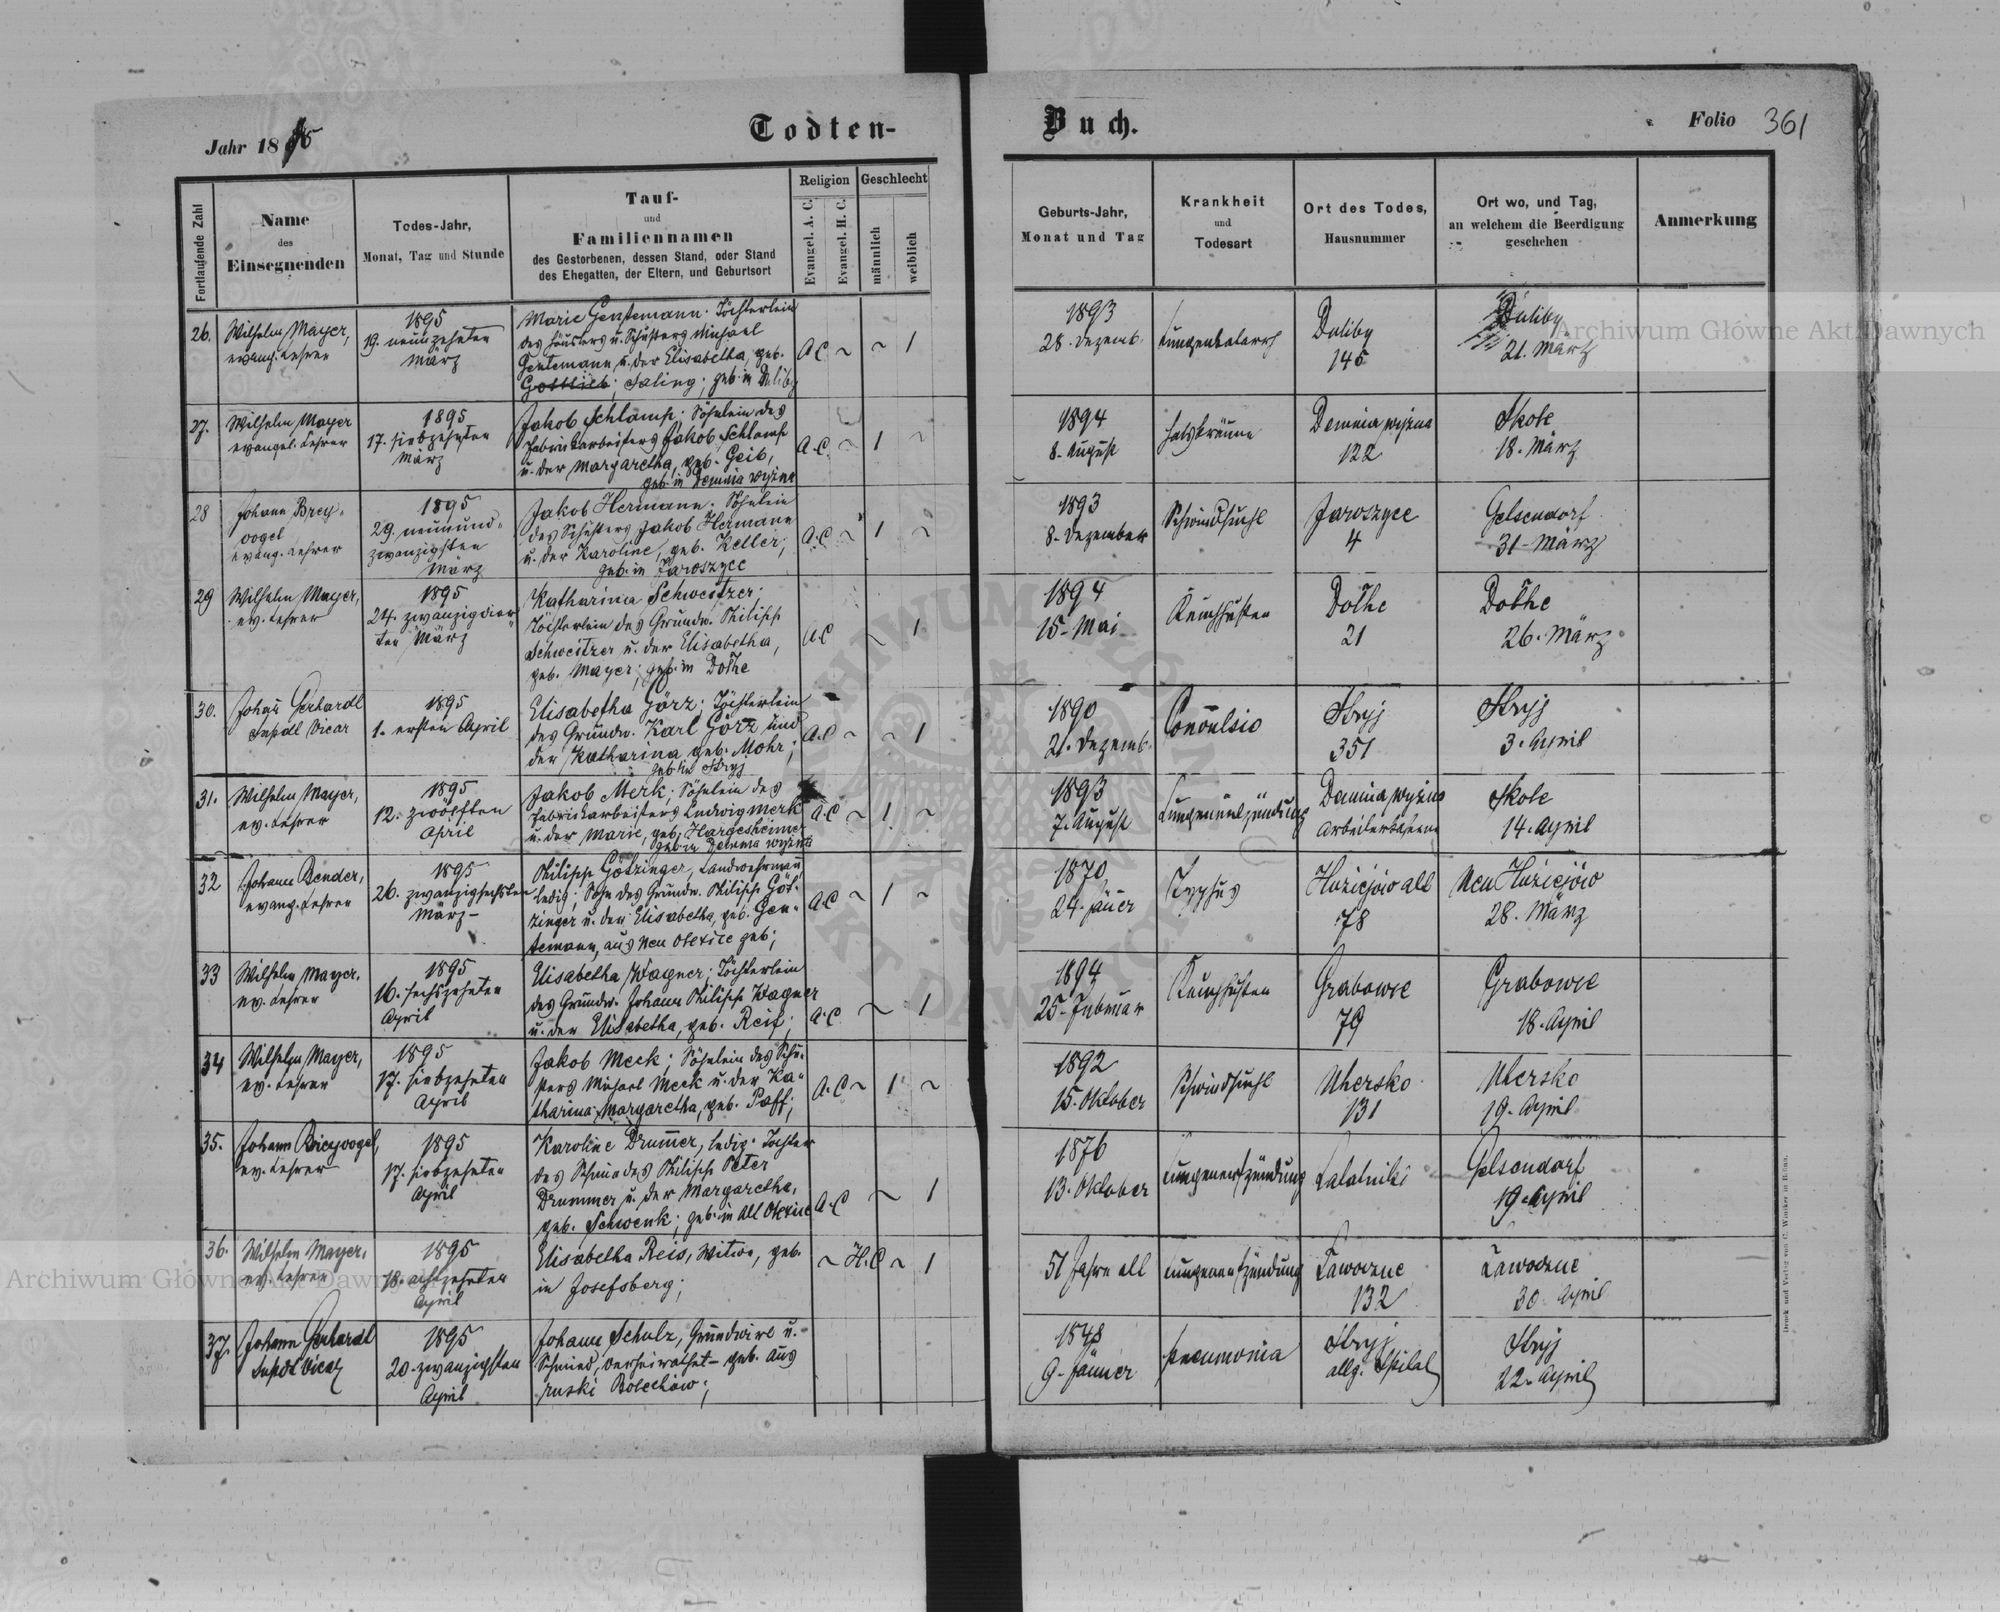 Jahr 1895
Todten-
Buch.
Folio 361
Fortlaufende Zahl
Name
des
Einsegnenden
Todes-Jahr,
Monat, Tag und Stunde
Tauf-
und
Familiennamen
des Gestorbenen, dessen Stand, oder Stand
des Ehegatten, der Eltern, und Geburtsort
Religion
Evangel. A. C.
Evangel. H. C.
Geschlecht
männlich
weiblich
Geburts-Jahr,
Monat und Tag
Krankheit
und
Todesart
Ort des Todes,
Hausnummer
Ort wo, und Tag,
an welchem die Beerdigung
geschehen
Anmerkung
26.
Wilhelm Mayer,
evang. Lehrer
1895
19. neunzehnten
März
Marie Gentemann. Töchterlein
des Häuslers u. Schusters Michael
Gentemann u. der Elisabetha, geb.
Gottlieb; Faling; geb. in Duliby
A.C ~ ~ 1
1893
28. Dezemb.
Lungenkatarrh
Duliby
145
Duliby
21. März
27.
Wilhelm Mayer
evangel. Lehrer
1895
17. siebzehnten
März
Jakob Schlamp. Söhnlein des
Fabriksarbeiters Jakob Schlamp
u. der Margaretha, geb. Geib,
geb. in Demnia wyżna
A.C. ~ 1 ~
1894
8. August
Halsbräune
Demnia wyżna
122
Skole
18. März
28
Johann Brey-
vogel
evang. Lehrer
1895
29. neunund-
zwanzigsten
März
Jakob Hermann. Söhnlein
des Schusters Jakob Hermann
u. der Karoline, geb. Keller,
geb. in Jaroszyce
A.C ~ 1 ~
1893
8. Dezember
Schwindsucht
Jaroszyce
4
Gelsendorf
31. März
29
Wilhelm Mayer,
ev. Lehrer
1895
24. zwanzigvier-
ten März
Katharina Schweitzer;
Töchterlein des Grundw. Philipp
Schweitzer u. der Elisabetha,
geb. Mayer; geb. in Dolhe
A.C ~ 1
1894
15. Mai
Keuchhusten
Dolhe
21
Dolhe
26. März
30.
Johann Gerhardt
Vicar
1895
1. ersten April
Elisabetha Görz; Töchterlein
des Grundw. Karl Görz und
der Katharina geb. Mohr;
geb. in Stryj
A.C ~ ~ 1
1890
21. Dezemb.
Convulsio
Stryj
351
Stryj
3. April
31.
Wilhelm Mayer,
ev. Lehrer
1895
12. zwölften
April
Jakob Merk; Söhnlein des
Fabriksarbeiters Ludwig Merk
u. der Marie, geb. Hargesheimer
geb. in Demnia wyżna
A.C ~ 1 ~
1893
7. August
Lungenentzündung
Demnia wyżna
Arbeiterkaserne
Skole
14. April
32
Johann Bender,
evang. Lehrer
1895
26. zwanzigsechsten
März
Philipp Götzinger, Landwehrmann,
ledig; Sohn des Grundw. Philipp Göt-
zinger u. der Elisabetha, geb. Gen-
temann, aus Neu Olexice geb;
A.C ~ 1 ~
1870
24. Jänner
Typhus
Huziejów alt
78
Neu Huziejów
28. März
33
Wilhelm Mayer.
ev. Lehrer
1895
16. sechszehnten
April
Elisabetha Wagner; Töchterlein
des Grundw. Johann Philipp Wagner
u. der Elisabetha, geb. Reif;
A.C ~ 1
1894
25. Februar
Keuchhusten
Grabowce
79
Grabowce
18. April
34
Wilhelm Mayer,
ev. Lehrer
1895
17. siebzehnten
April
Jakob Meck; Söhnlein des Schu-
sters Michael Meck u. der Ka-
tharina Margaretha, geb. Paff;
A.C ~ 1 ~
1892
15. Oktober
Schwindsucht
Uhersko
131
Uhersko
19. April
35.
Johann Breyvogel,
ev. Lehrer
1895
17. siebzehnten
April
Karoline Drummer, ledig. Tochter
des Schmiedes Philipp Peter
Drummer u. der Margaretha,
geb. Schwenk; geb. in Alt Olexice
A.C ~ 1
1876
13. Oktober
Lungenentzündung
Lalatniki
Gelsendorf
19. April
36.
Wilhelm Mayer.
ev. Lehrer
1895
18. achtzehnten
April
Elisabetha Reis, Witwe, geb.
in Josefsberg;
~ H.C ~ 1
51 Jahre alt
Lungenentzündung
Ławoczne
132
Ławoczne
30. April
37.
Johann Gerhardt
Vicar
1895
20. zwanzigsten
April
Johann Schulz, Grundwirt u.
Schmied, verheirathet - geb. aus
ruski Bolechów;
1848
9. Jänner
pneumonia
Stryj
allg. Spital
Stryj
22. April
Druck und Verlag von C. Winiker in Brünn.
Archiwum Główne Akt Dawnych
Archiwum Główne Akt Dawnych
ARCHIWUM GŁÓWNE AKT DAWNYCH